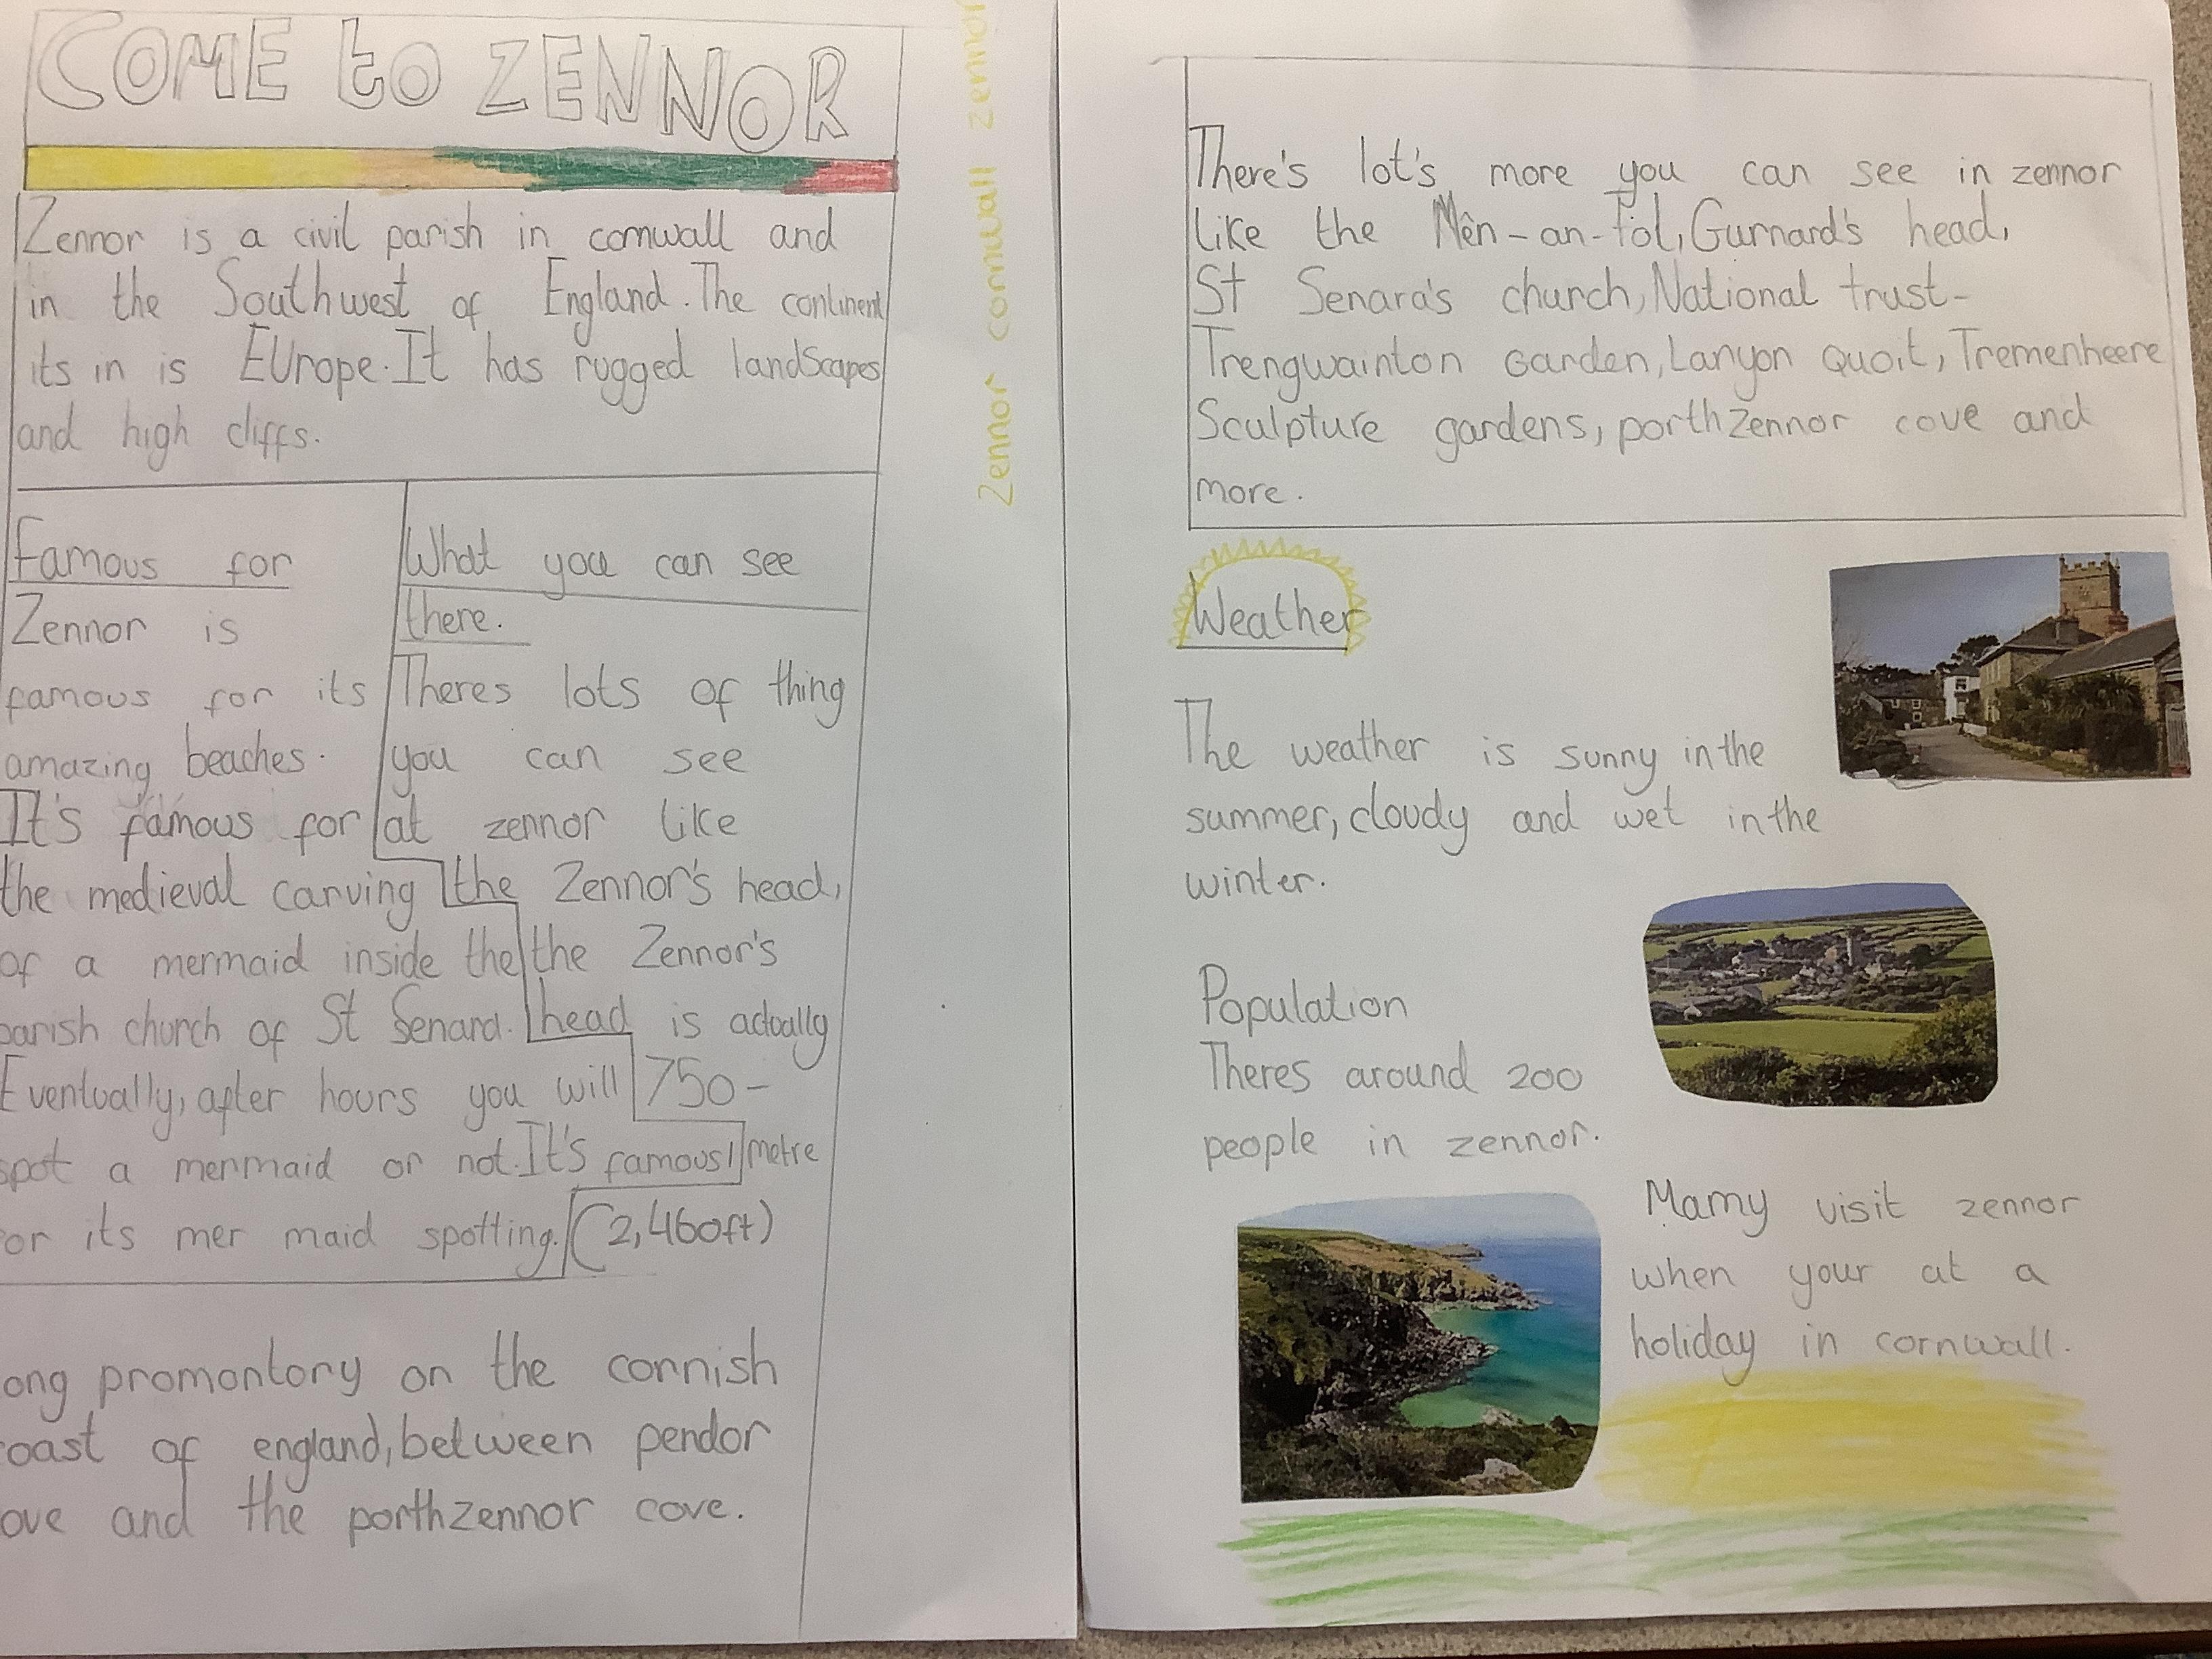 COME to ZENNOR
Zennor is a civil parish in cornwall and
in the Southwest of England. The continent
its in is EUrope. It has rugged landscapes
and high cliffs.
Famous for
Zennor is
famous for its
amazing beaches.
It's famous for
the medieval carving
of a mermaid inside the
parish church of St Senara.
Eventually, after hours you will
spot a mermaid or not. It's famous
or its mer maid spotting.
What you can see
there.
Theres lots of thing
you can see
at zennor like
the Zennor's head,
the Zennor's
head is actually
750-
metre
(2,460ft)
ong promontory on the cornish
oast of england, between pendor
ove and the porthzennor cove.
Zennor cornwall zennor
There's lot's more you can see in zennor
like the Mên-an-tol, Gurnard's head,
St Senara's church, National trust-
Trengwainton Garden, Lanyon Quoit, Tremenheere
Sculpture gardens, porthzennor cove and
more.
Weather
The weather is sunny in the
summer, cloudy and wet in the
winter.
Population
Theres around 200
people in zennor.
Mamy visit zennor
when your at a
holiday in cornwall.